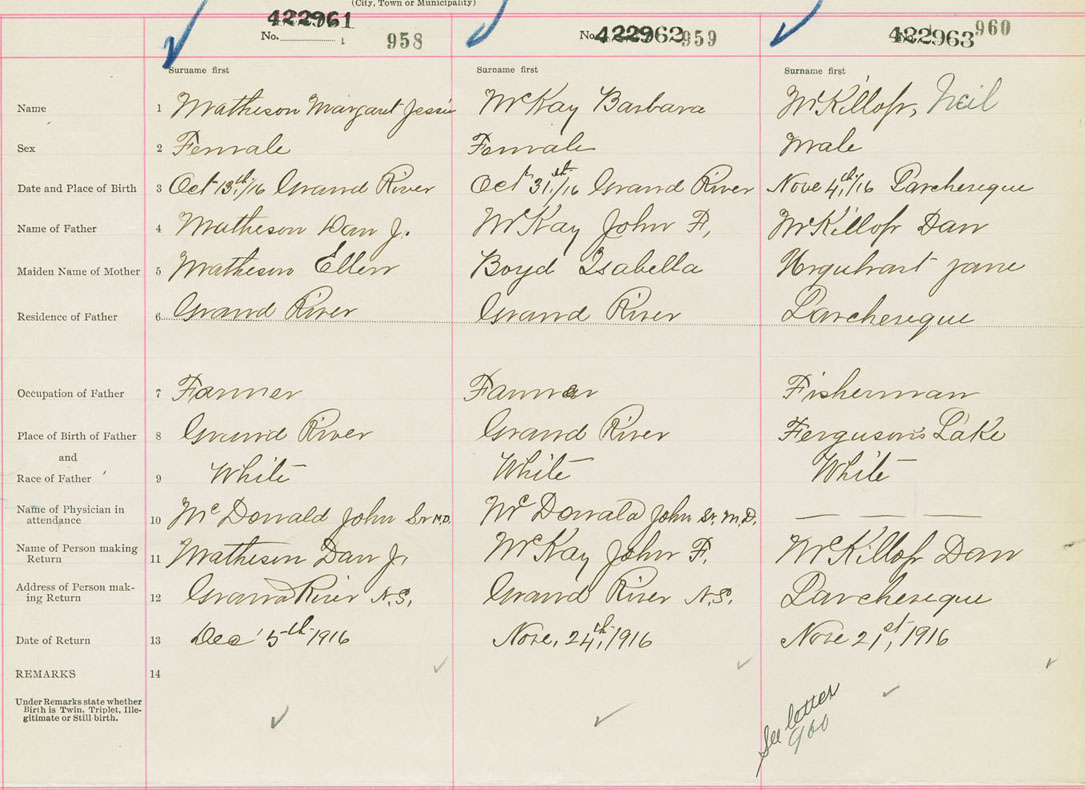 (City, Town or Municipality)
422961 422962 422963
No. 958 No. 959 960
Surname first Surname first Surname first
Name 1 Matheson Margaret Jessie McKay Barbara McKillop, Neil
Sex 2 Female Female Male
Date and Place of Birth 3 Oct 13th/16 Grand River Oct 31th/16 Grand River Nove 4th/16 Larcheveque
Name of Father 4 Matheson Dan J. McKay John F, McKillop Dan
Maiden Name of Mother 5 Matheson Ellen Boyd Isabella Urquhart Jane
Residence of Father 6 Grand River Grand River Larcheveque
Occupation of Father 7 Farmer Farmer Fisherman
Place of Birth of Father 8 Grand River Grand River Ferguson's Lake
and
Race of Father 9 White White White
Name of Physician in
attendance 10 Mc Donald John Sr M.D. Mc Donald John Sr. M.D.
Name of Person making
Return 11 Matheson Dan J. McKay John F. McKillop Dan
Address of Person mak-
ing Return 12 Grand River N.S. Grand River N.S. Larcheveque
Date of Return 13 Dec 5th 1916 Nove, 24th, 1916 Nove 21st, 1916
REMARKS 14
Under Remarks state whether
Birth is Twin, Triplet, Ille-
gitimate or Still-birth.
See letter
960